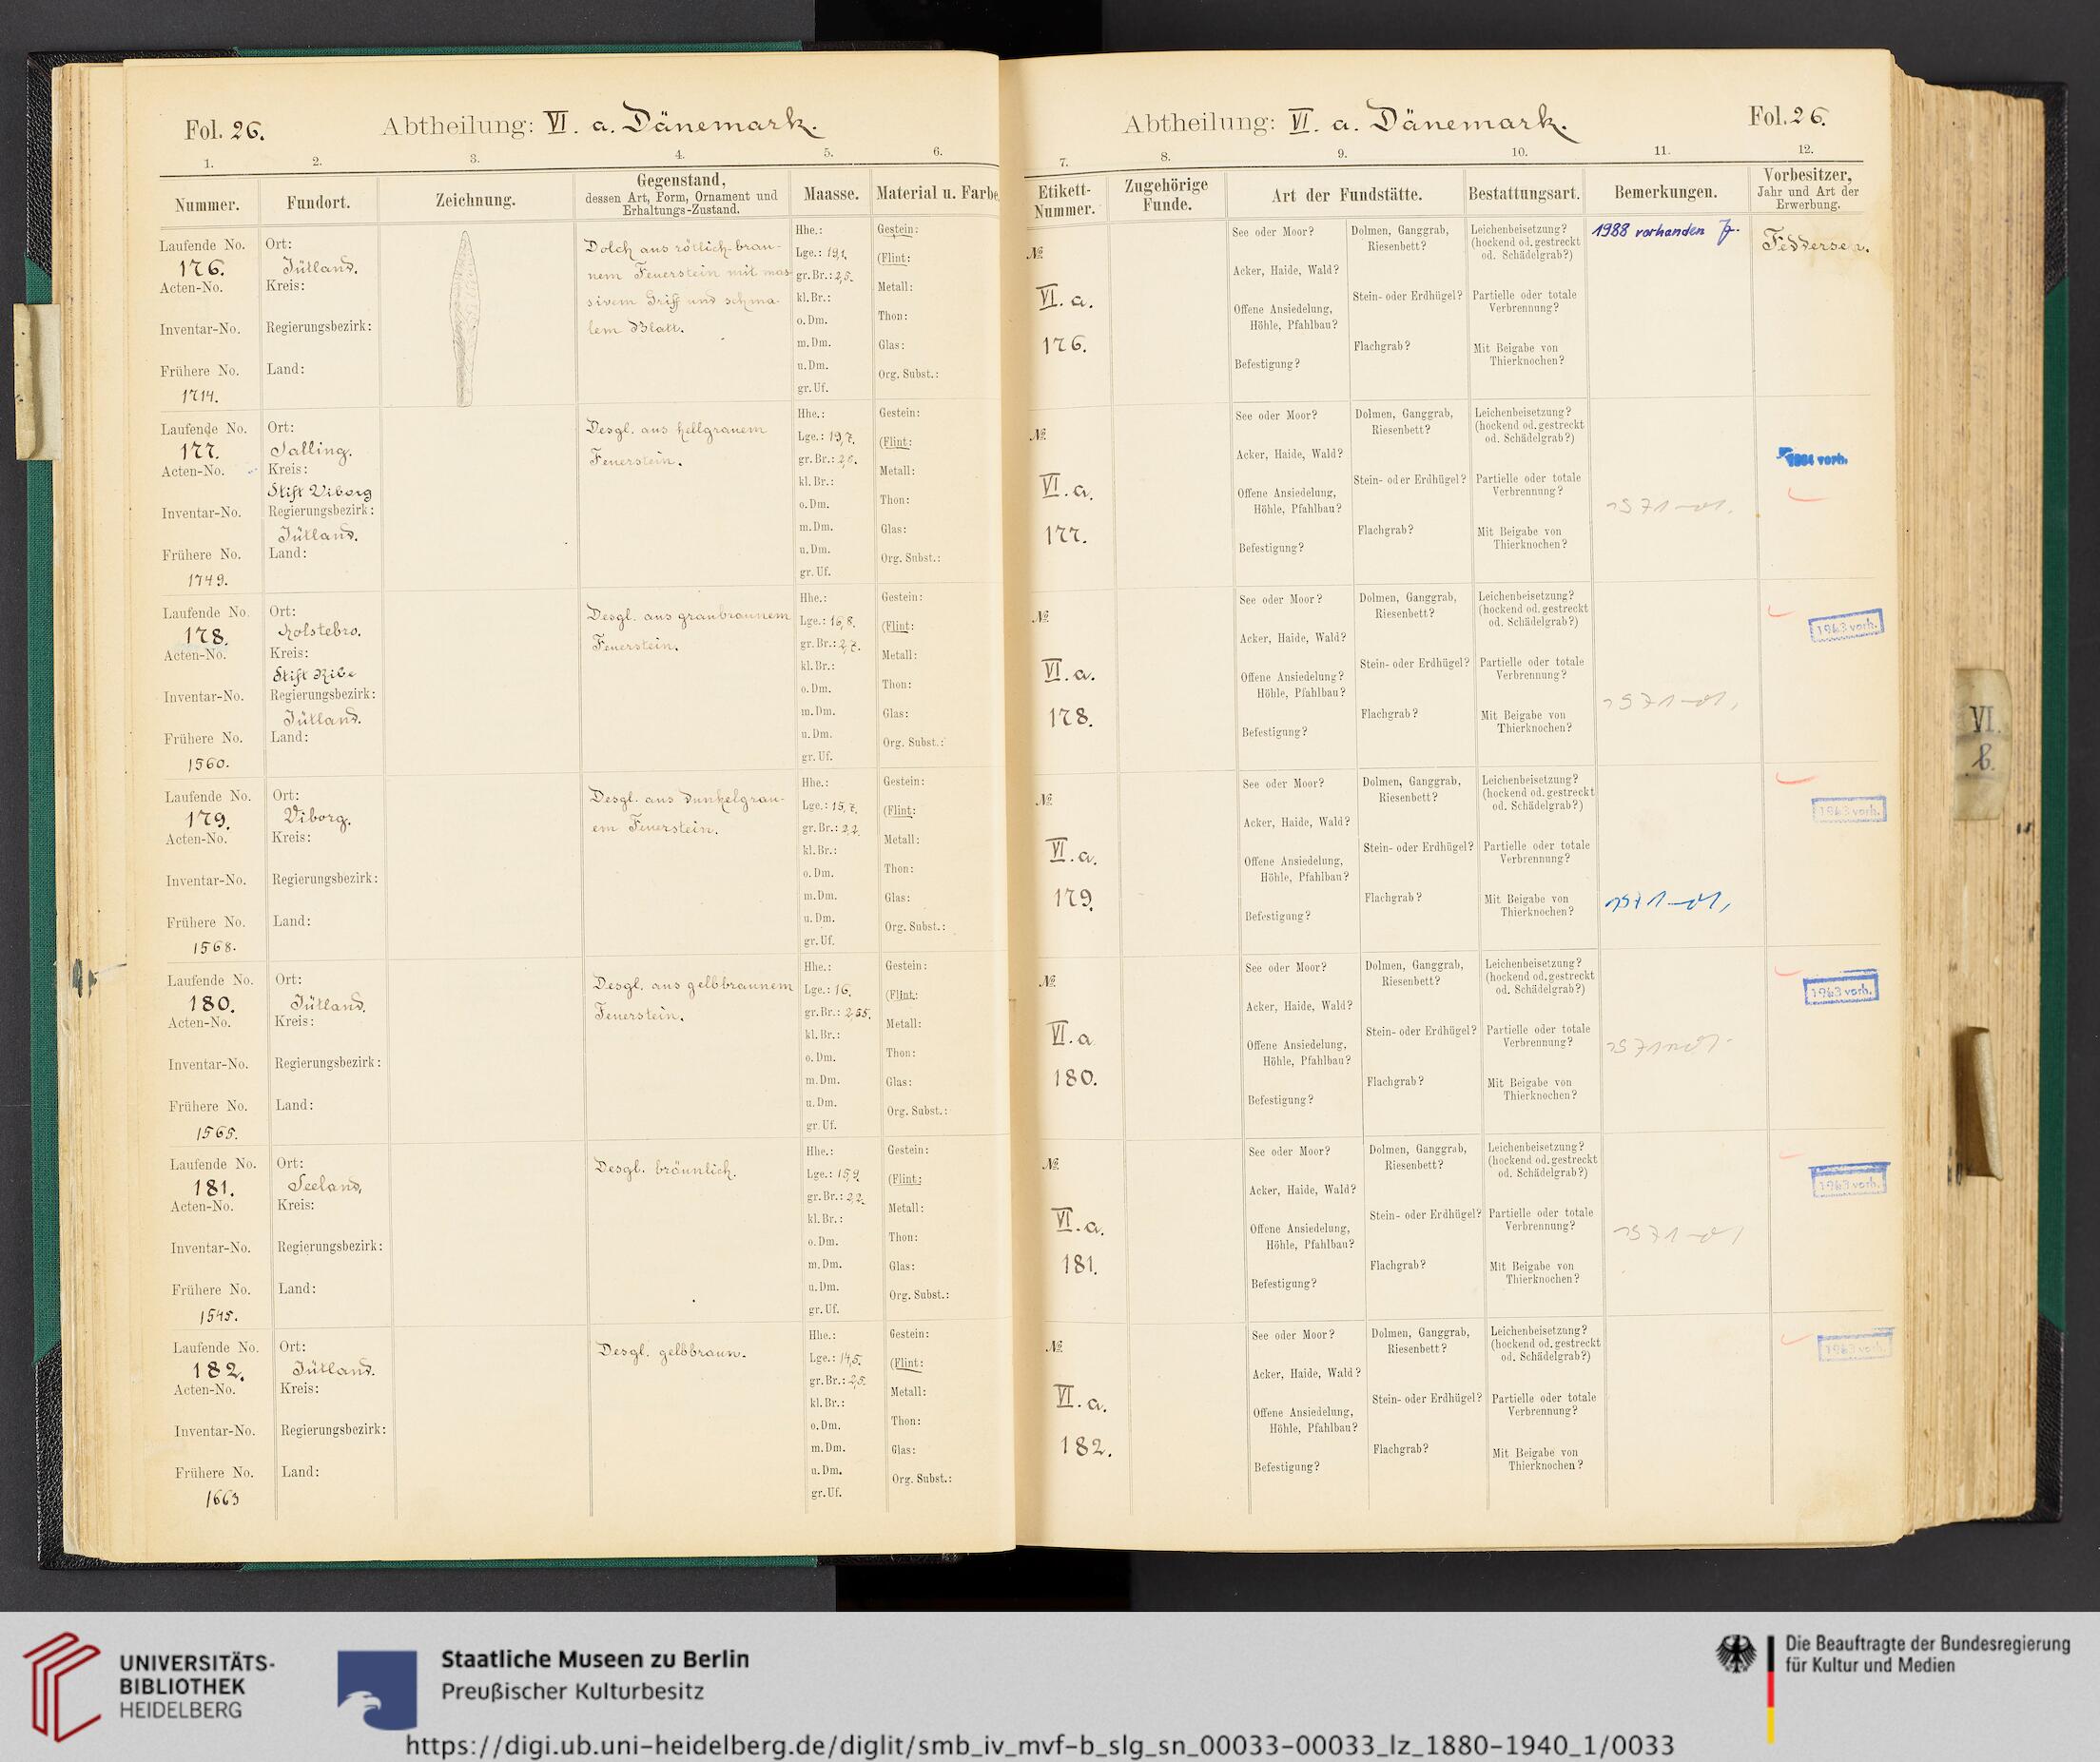 Fol. 26.
Abtheilung: VI. a. Dänemark.
1. 2. 3. 4. 5. 6.
Nummer.
Fundort.
Zeichnung.
Gegenstand,
dessen Art, Form, Ornament und
Erhaltungs-Zustand.
Maasse.
Material u. Farbe
Laufende No.
176.
Acten-No.
Inventar-No.
Frühere No.
1714.
Ort:
Jütland.
Kreis:
Regierungsbezirk:
Land:
Dolch aus rötlich-brau-
nem Feuerstein mit mas-
sivem Griff und schma-
lem Blatt.
Hhe.:
Lge.: 19,1.
gr. Br.: 2,5.
kl. Br.:
o. Dm.
m. Dm.
u. Dm.
gr. Uf.
Gestein:
(Flint:
Metall:
Thon:
Glas:
Org. Subst.:
Laufende No.
177.
Acten-No.
Inventar-No.
Frühere No.
1749.
Ort:
Salling.
Kreis:
Stift Viborg
Regierungsbezirk:
Jütland.
Land:
Desgl. aus hellgrauem
Feuerstein.
Hhe.:
Lge.: 19,7.
gr. Br.: 2,8.
kl. Br.:
o. Dm.
m. Dm.
u. Dm.
gr. Uf.
Gestein:
(Flint:
Metall:
Thon:
Glas:
Org. Subst.:
Laufende No.
178.
Acten-No.
Inventar-No.
Frühere No.
1560.
Ort:
Holstebro.
Kreis:
Stift Ribe
Regierungsbezirk:
Jütland.
Land:
Desgl. aus graubraunem
Feuerstein.
Hhe.:
Lge.: 16,8.
gr. Br.: 2,7.
kl. Br.:
o. Dm.
m. Dm.
u. Dm.
gr. Uf.
Gestein:
(Flint:
Metall:
Thon:
Glas:
Org. Subst.:
Laufende No.
179.
Acten-No.
Inventar-No.
Frühere No.
1568.
Ort:
Viborg.
Kreis:
Regierungsbezirk:
Land:
Desgl. aus dunkelgrau-
em Feuerstein.
Hhe.:
Lge.: 15,7.
gr. Br.: 2,2.
kl. Br.:
o. Dm.
m. Dm.
u. Dm.
gr. Uf.
Gestein:
(Flint:
Metall:
Thon:
Glas:
Org. Subst.:
Laufende No.
180.
Acten-No.
Inventar-No.
Frühere No.
1565.
Ort:
Jütland.
Kreis:
Regierungsbezirk:
Land:
Desgl. aus gelbbraunem
Feuerstein.
Hhe.:
Lge.: 16.
gr. Br.: 2,35.
kl. Br.:
o. Dm.
m. Dm.
u. Dm.
gr. Uf.
Gestein:
(Flint:
Metall:
Thon:
Glas:
Org. Subst.:
Laufende No.
181.
Acten-No.
Inventar-No.
Frühere No.
1545.
Ort:
Seeland.
Kreis:
Regierungsbezirk:
Land:
Desgl. bräunlich.
Hhe.:
Lge.: 15,9.
gr. Br.: 2,2.
kl. Br.:
o. Dm.
m. Dm.
u. Dm.
gr. Uf.
Gestein:
(Flint:
Metall:
Thon:
Glas:
Org. Subst.:
Laufende No.
182.
Acten-No.
Inventar-No.
Frühere No.
1663
Ort:
Jütland.
Kreis:
Regierungsbezirk:
Land:
Desgl. gelbbraun.
Hhe.:
Lge.: 14,5.
gr. Br.: 2,5.
kl. Br.:
o. Dm.
m. Dm.
u. Dm.
gr. Uf.
Gestein:
(Flint:
Metall:
Thon:
Glas:
Org. Subst.:
Abtheilung: VI. a. Dänemark.
Fol. 26.
7. 8. 9. 10. 11. 12.
Etikett-
Nummer.
Zugehörige
Funde.
Art der Fundstätte.
Bestattungsart.
Bemerkungen.
Vorbesitzer,
Jahr und Art der
Erwerbung.
№
VI. a.
176.
See oder Moor?
Acker, Haide, Wald?
Offene Ansiedelung,
Höhle, Pfahlbau?
Befestigung?
Dolmen, Ganggrab,
Riesenbett?
Stein- oder Erdhügel?
Flachgrab?
Leichenbeisetzung?
(hockend od. gestreckt
od. Schädelgrab?)
Partielle oder totale
Verbrennung?
Mit Beigabe von
Thierknochen?
1988 vorhanden
Feddersen.
№
VI. a.
177.
See oder Moor?
Acker, Haide, Wald?
Offene Ansiedelung,
Höhle, Pfahlbau?
Befestigung?
Dolmen, Ganggrab,
Riesenbett?
Stein- oder Erdhügel?
Flachgrab?
Leichenbeisetzung?
(hockend od. gestreckt
od. Schädelgrab?)
Partielle oder totale
Verbrennung?
Mit Beigabe von
Thierknochen?
vorh.
№
VI. a.
178.
See oder Moor?
Acker, Haide, Wald?
Offene Ansiedelung?
Höhle, Pfahlbau?
Befestigung?
Dolmen, Ganggrab,
Riesenbett?
Stein- oder Erdhügel?
Flachgrab?
Leichenbeisetzung?
(hockend od. gestreckt
od. Schädelgrab?)
Partielle oder totale
Verbrennung?
Mit Beigabe von
Thierknochen?
1963 vorh.
№
VI. a.
179.
See oder Moor?
Acker, Haide, Wald?
Offene Ansiedelung,
Höhle, Pfahlbau?
Befestigung?
Dolmen, Ganggrab,
Riesenbett?
Stein- oder Erdhügel?
Flachgrab?
Leichenbeisetzung?
(hockend od. gestreckt
od. Schädelgrab?)
Partielle oder totale
Verbrennung?
Mit Beigabe von
Thierknochen?
1963 vorh.
№
VI. a
180.
See oder Moor?
Acker, Haide, Wald?
Offene Ansiedelung,
Höhle, Pfahlbau?
Befestigung?
Dolmen, Ganggrab,
Riesenbett?
Stein- oder Erdhügel?
Flachgrab?
Leichenbeisetzung?
(hockend od. gestreckt
od. Schädelgrab?)
Partielle oder totale
Verbrennung?
Mit Beigabe von
Thierknochen?
1963 vorh.
№
VI. a.
181.
See oder Moor?
Acker, Haide, Wald?
Offene Ansiedelung,
Höhle, Pfahlbau?
Befestigung?
Dolmen, Ganggrab,
Riesenbett?
Stein- oder Erdhügel?
Flachgrab?
Leichenbeisetzung?
(hockend od. gestreckt
od. Schädelgrab?)
Partielle oder totale
Verbrennung?
Mit Beigabe von
Thierknochen?
1963 vorh.
№
VI. a.
182.
See oder Moor?
Acker, Haide, Wald?
Offene Ansiedelung,
Höhle, Pfahlbau?
Befestigung?
Dolmen, Ganggrab,
Riesenbett?
Stein- oder Erdhügel?
Flachgrab?
Leichenbeisetzung?
(hockend od. gestreckt
od. Schädelgrab?)
Partielle oder totale
Verbrennung?
Mit Beigabe von
Thierknochen?
1963 vorh.
VI.
b.
UNIVERSITÄTS-
BIBLIOTHEK
HEIDELBERG
Staatliche Museen zu Berlin
Preußischer Kulturbesitz
Die Beauftragte der Bundesregierung
für Kultur und Medien
https://digi.ub.uni-heidelberg.de/diglit/smb_iv_mvf-b_slg_sn_00033-00033_lz_1880-1940_1/0033